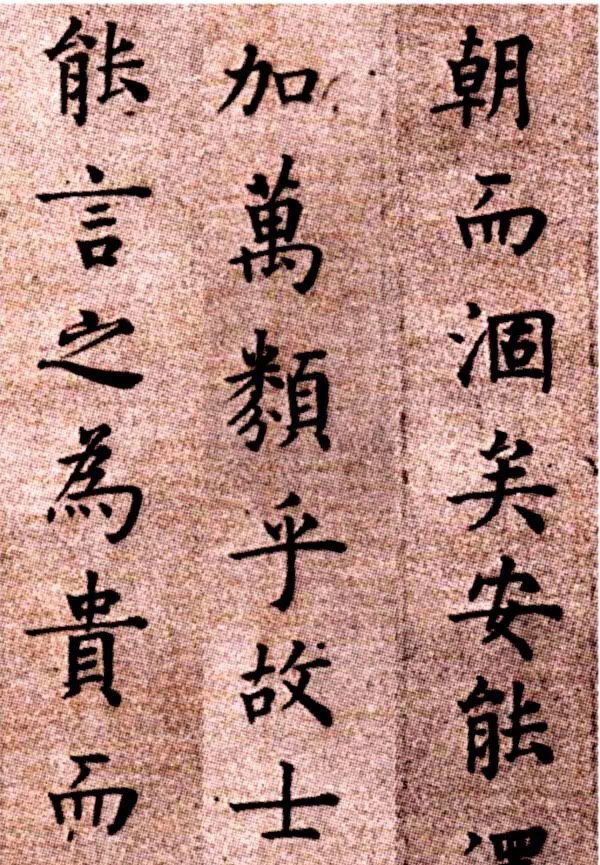 朝而涸矣安能
加萬類乎故士
能言之為貴而